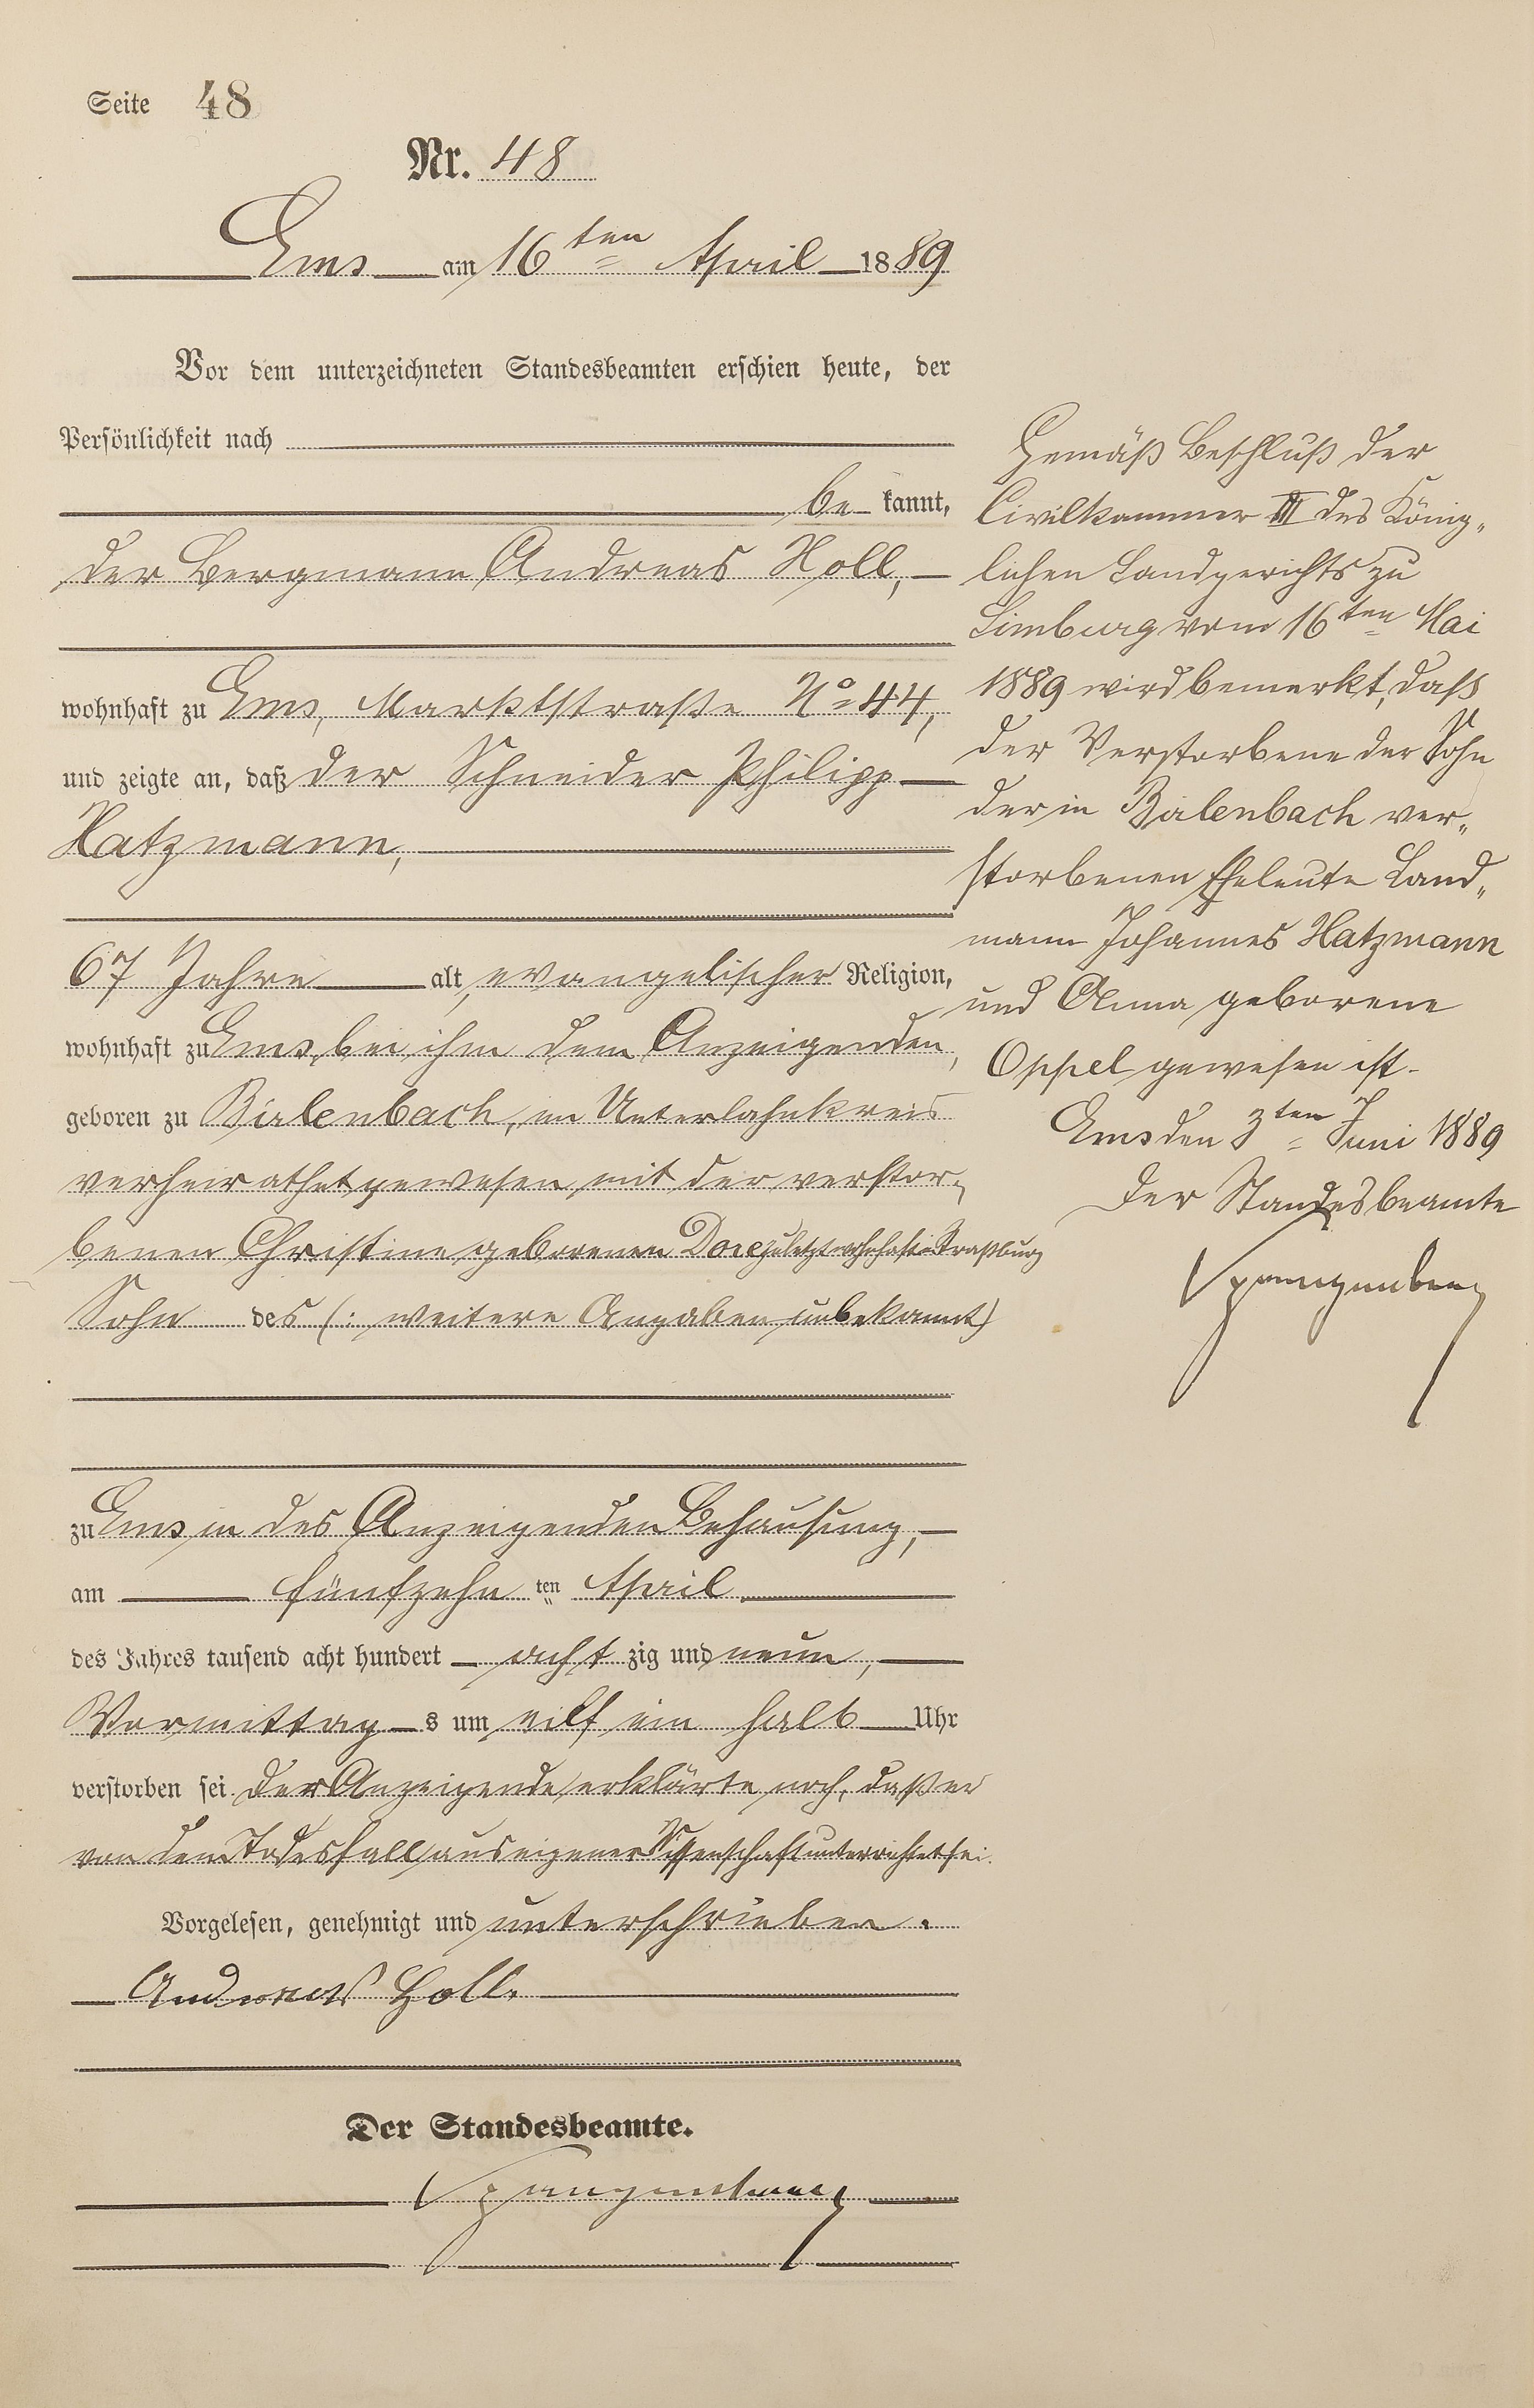 Seite 48
Nr. 48
Ems am 16ten April 1889
Vor dem unterzeichneten Standesbeamten erschien heute, der
Persönlichkeit nach
be kannt,
der Bergmann Andreas Holl,
wohnhaft zu Ems, Marktstraße No 44,
und zeigte an, daß der Schneider Philipp
Hatzmann,
67 Jahre alt, evangelischer Religion,
wohnhaft zu Ems, bei ihm dem Anzeigenden,
geboren zu Birlenbach, im Unterlahnkreis
verheirathet gewesen mit der verstor-
benen Christine geborenen Dore zuletzt wohnhaft in Straßburg
Sohn des (: weitere Angaben unbekannt)
zu Ems in des Anzeigenden Behausung,
am fünfzehn ten April
des Jahres tausend acht hundert acht zig und neun,
Vormittag s um eilf ein halb Uhr
verstorben sei. Der Anzeigende erklärte noch, daß er
von dem Todesfall aus eigener Wissenschaft unterrichtet sei.
Vorgelesen, genehmigt und unterschrieben.
Andreas Holl.
Der Standesbeamte.
Spangenberg
Gemäß Beschluß der
Civilkammer III des König-
lichen Landgerichts zu
Limburg vom 16ten Mai
1889 wird bemerkt, daß
der Verstorbene der Sohn
der in Birlenbach ver-
storbenen Eheleute Land-
mann Johannes Hatzmann
und Anna geborene
Oppel gewesen ist.
Ems den 3ten Juni 1889
Der Standesbeamte
Spangenberg